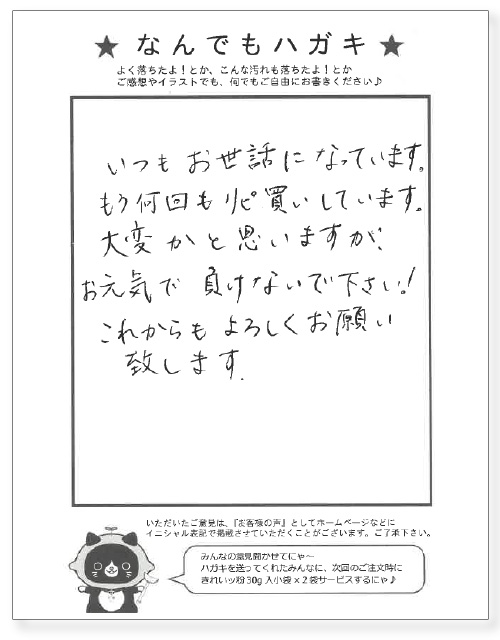 ★ なんでもハガキ ★
よく落ちたよ！とか、こんな汚れも落ちたよ！とか
ご感想やイラストでも、何でもご自由にお書きください♪
いつもお世話になっています。
もう何回もリピ買いしています。
大変かと思いますが、
お元気で負けないで下さい！
これからもよろしくお願い
致します。
いただいたご意見は、『お客様の声』としてホームページなどに
イニシャル表記で掲載させていただくことがございます。ご了承下さい。
みんなの意見聞かせてにゃ〜
ハガキを送ってくれたみんなに、次回のご注文時に
きれいッ粉30g入小袋×2袋サービスするにゃ♪